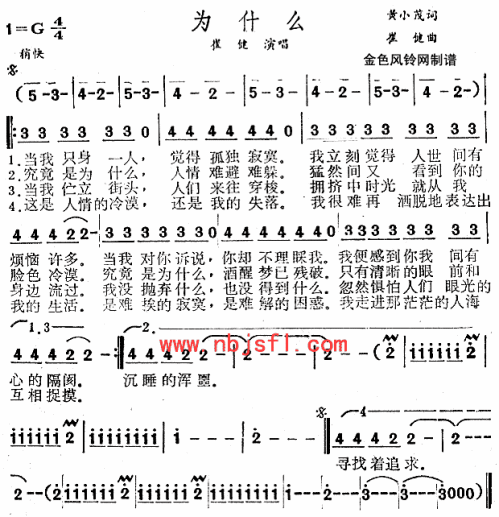 为什么
1=G 4/4
稍快
崔健 演唱
黄小茂词
崔健曲
金色风铃网制谱
(5-3-|4-2-|5-3-|4-2-|5-3-|5-3-|4-2-|4-2-)|
33 33 33 30 | 44 44 44 40 | 33 33 33 33
1.当我 只身 一人， 觉得 孤独 寂寞。 我立刻觉得 人世 间有
2.究竟 是为 什么， 人情 难避 难躲。 猛然间又 看到 你的
3.当我 伫立 街头， 人们 来往 穿梭。 拥挤中时光 就从 我
4.这是 人情的冷漠， 还是 我的 失落。 我很难再 洒脱地 表达出
44 44 42 2-|33 33 33 30|44 44 44 40|33 33 33 33
烦恼 许多。 当我 对你 诉说， 你却 不理 睬我。 我便感到你我 间有
脸色 冷漠。 究竟 是为 什么， 酒醒 梦已 残破。 只有清晰的眼 前和
身边 流过。 我没 抛弃 什么， 也没 得到 什么。 忽然惧怕人们 眼光的
我的 生活。 是难 挨的 寂寞， 是难 解的 困惑。 我走进那茫茫的 人海
1.3.
2.
www.nbjsfl.com
44 42 2-:|44 42 2-|2-2-|2-(2|iiiiii2|iiiiii
心的 隔阂。 沉睡的浑噩。
互相 捉摸。
iiiiii2|iiiiiiii|i---|2---|44 42 2-|2---
4
寻找着追求。
2--(2|iiiiii2|iiiiii2|iiiiiiii|i---2---|3---3---|3000)|